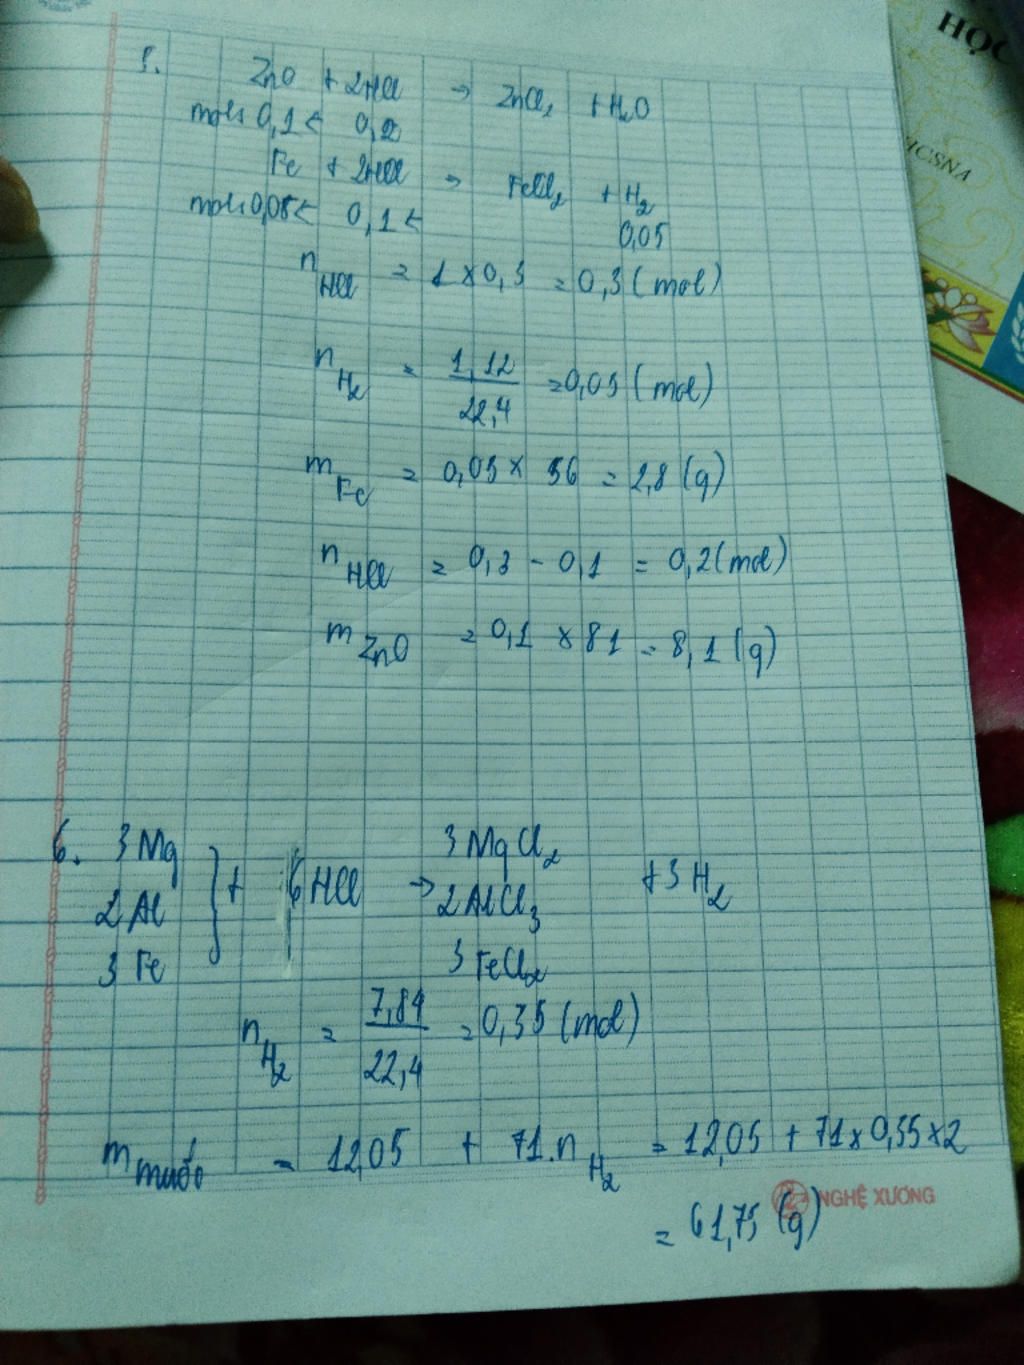 5. ZnO + 2HCl → ZnCl₂ + H₂O
mol: 0,1 < 0,2
Fe + 2HCl → FeCl₂ + H₂
mol: 0,05 < 0,1 <
0,05
n HCl = 1 × 0,3 = 0,3 (mol)
n H₂ = 1,12 / 22,4 = 0,05 (mol)
m Fe = 0,05 × 56 = 2,8 (g)
n HCl = 0,3 - 0,1 = 0,2 (mol)
m ZnO = 0,1 × 81 = 8,1 (g)
6. 3 Mg
2 Al
3 Fe
} + 6 HCl →
3 MgCl₂
2 AlCl₃
3 FeCl₂
+ 3 H₂
n H₂ = 7,84 / 22,4 = 0,35 (mol)
m muối = 12,05 + 71.n H₂ = 12,05 + 71 × 0,35 × 2
= 61,75 (g)
NGHỆ XƯƠNG
HỌC
ICSNA